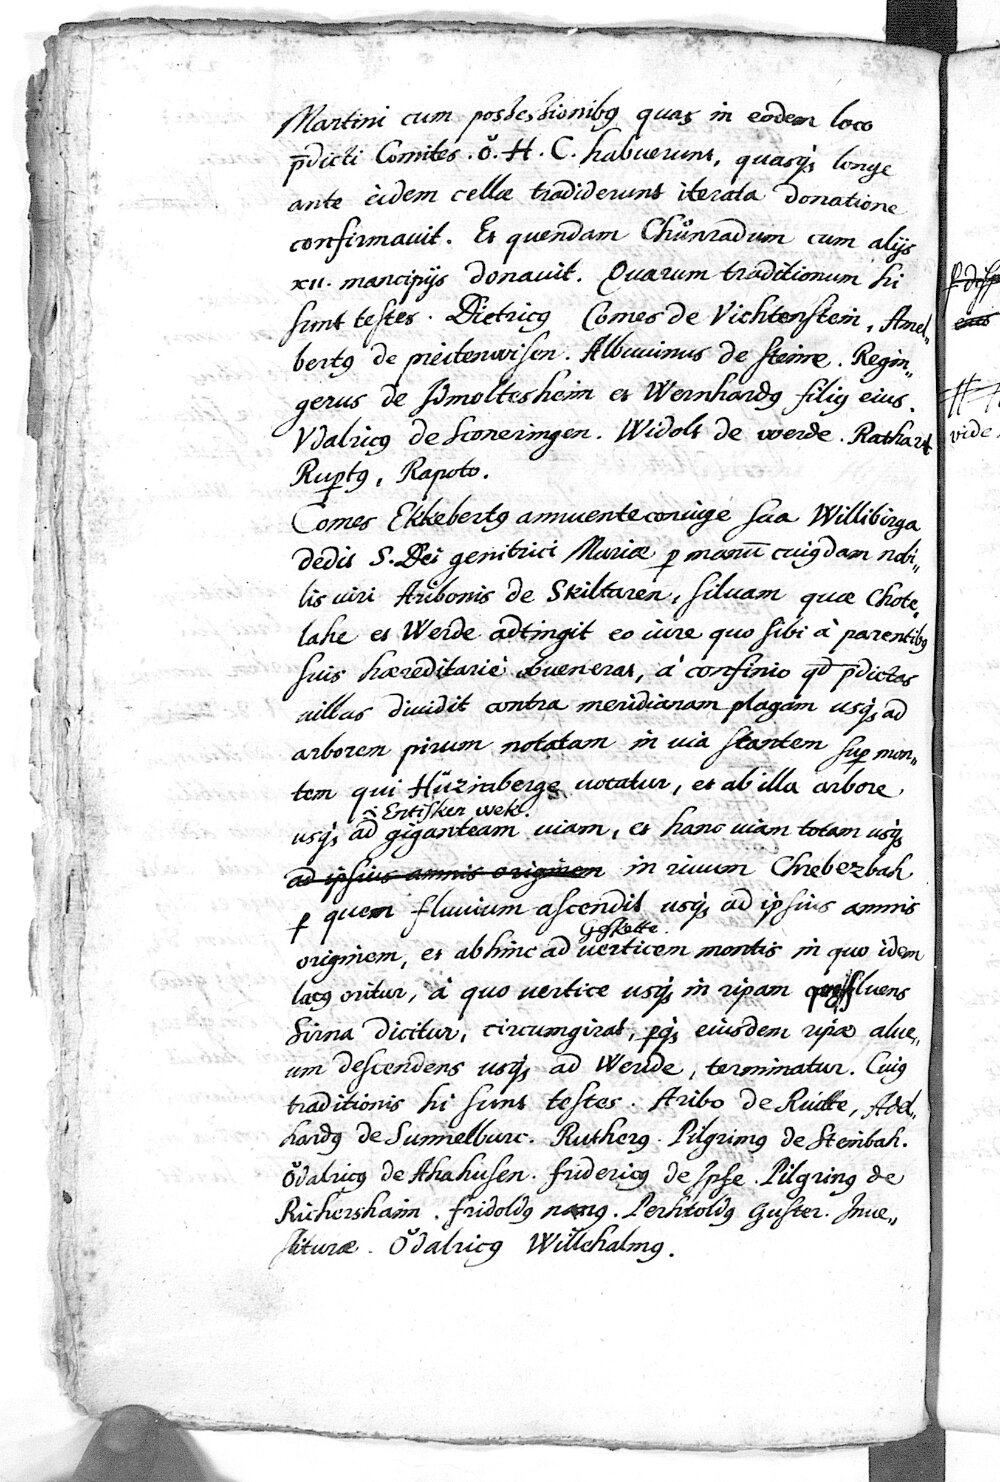 Martini cum possessionibꝰ quas in eodem loco
p̄dicti Comites . ǒ . H . C . habuerunt, quasq́ꝫ longe
ante eidem cellæ tradiderunt iterata donatione
confirmauit . Et quendam Chůnradum cum alijs
xii. mancipijs donauit. Quarum traditionum hi
sunt testes . Dietricꝰ Comes de Vichtenstein, Amel„
bertꝰ de preitenwisen . Albuuinus de steine . Regin„
gerus de Smoltesheim et Wernhardꝰ filiꝰ eius.
Vdalricꝰ de Sconeringen . Widolt de werde . Rathart
Ruꝑtꝰ, Rapoto.
Comes Ekkebertꝰ annuente coniuge sua Willibirga
dedit S. Dei genitrici Mariæ ꝑ manū cuiꝰdam nobi„
lis uiri Aribonis de Skiltaren, siluam quæ Chote„
lahe et Werde adtingit eo iure quo sibi à parentibꝰ
suis hæreditarié obuenerat, á confinio qd̄ p̄dictas
uillas diuidit contra meridianam plagam usq́ꝫ ad
arborem pirum notatam in uia stantem suꝑ mon„
tem qui Hůzinberge uocatur, et ab illa arbore
i Entisken wek.
usq́ꝫ ad giganteam uiam, et hanc uiam totam usq́ꝫ
ad ipsius amnis originem in riuum Chrebezbah
ꝑ quem fluuium ascendit usq́ꝫ ad ipsius amnis
originem, et abhinc ad uerticem montis in quo idem
lacꝰ oritur, á quo uertice usq́ꝫ in ripam fluens
Sirna dicitur, circumgirat, ꝑq́ꝫ eiusdem ripæ alue„
um descendens usq́ꝫ ad Weride, terminatur. Cuiꝰ
traditionis hi sunt testes . Aribo de Ruitte, Adel„
hardꝰ de Sunnelburc . Rutherꝰ . Pilgrimꝰ de Steinbah.
ǒdalricꝰ de Ahahusen . fridericꝰ de Ipse . Pilgrimꝰ de
Richersheim . fridoldꝰ nanꝰ . Perhtoldꝰ Guster . Inue„
stituræ . Ǒdalricꝰ Willehalmꝰ.
vide